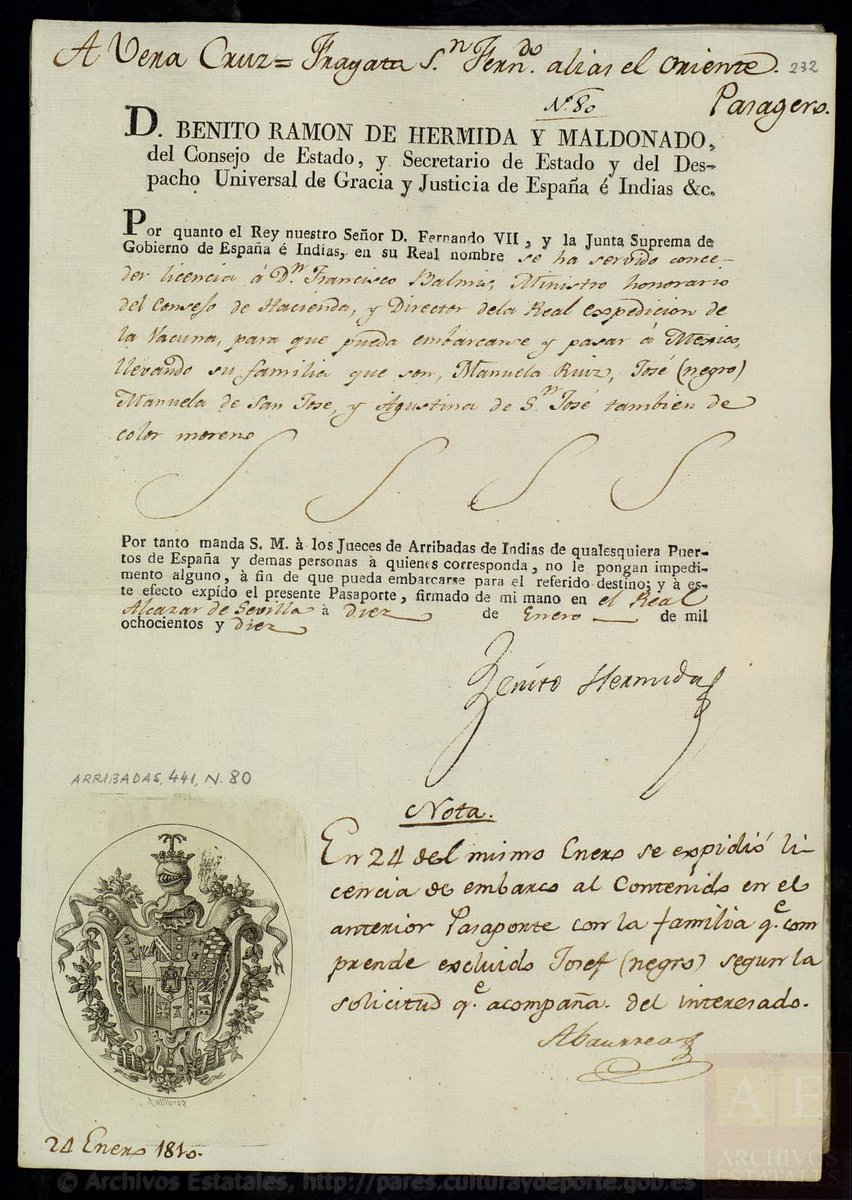 A Vera Cruz = Fragata S.n Fern.do alias el Oriente. 232
N.º 80
Pasagero.
D. BENITO RAMON DE HERMIDA Y MALDONADO,
del Consejo de Estado, y Secretario de Estado y del Des-
pacho Universal de Gracia y Justicia de España é Indias &c.
Por quanto el Rey nuestro Señor D. Fernando VII, y la Junta Suprema de
Gobierno de España é Indias, en su Real nombre se ha servido conce-
der licencia á D.n Francisco Balmis, Ministro honorario
del Consejo de Hacienda, y Director dela Real expedicion de
la Vacuna, para que pueda embarcarse y pasar á Mexico,
llevando su familia que son, Manuela Ruiz, José (negro)
Manuela de San Jose, y Agustina de S.n José tambien de
color moreno
Por tanto manda S. M. à los Jueces de Arribadas de Indias de qualesquiera Puer-
tos de España y demas personas à quienes corresponda, no le pongan impedi-
mento alguno, à fin de que pueda embarcarse para el referido destino; y à es-
te efecto expído el presente Pasaporte, firmado de mi mano en el Real
Alcazar de Sevilla à diez de Enero de mil
ochocientos y diez
Benito Hermida
ARRIBADAS, 441, N. 80
Nota.
En 24 del mismo Enero se expidió li
cencia de embarco al Contenido en el
anterior Pasaporte con la familia q.e com
prende excluido Josef (negro) segun la
solicitud q.e acompaña. del interesado.
Abaurrea
24 Enero 1810.
AE
ARCHIVOS
ESTATALES
© Archivos Estatales, http://pares.culturaydeporte.gob.es